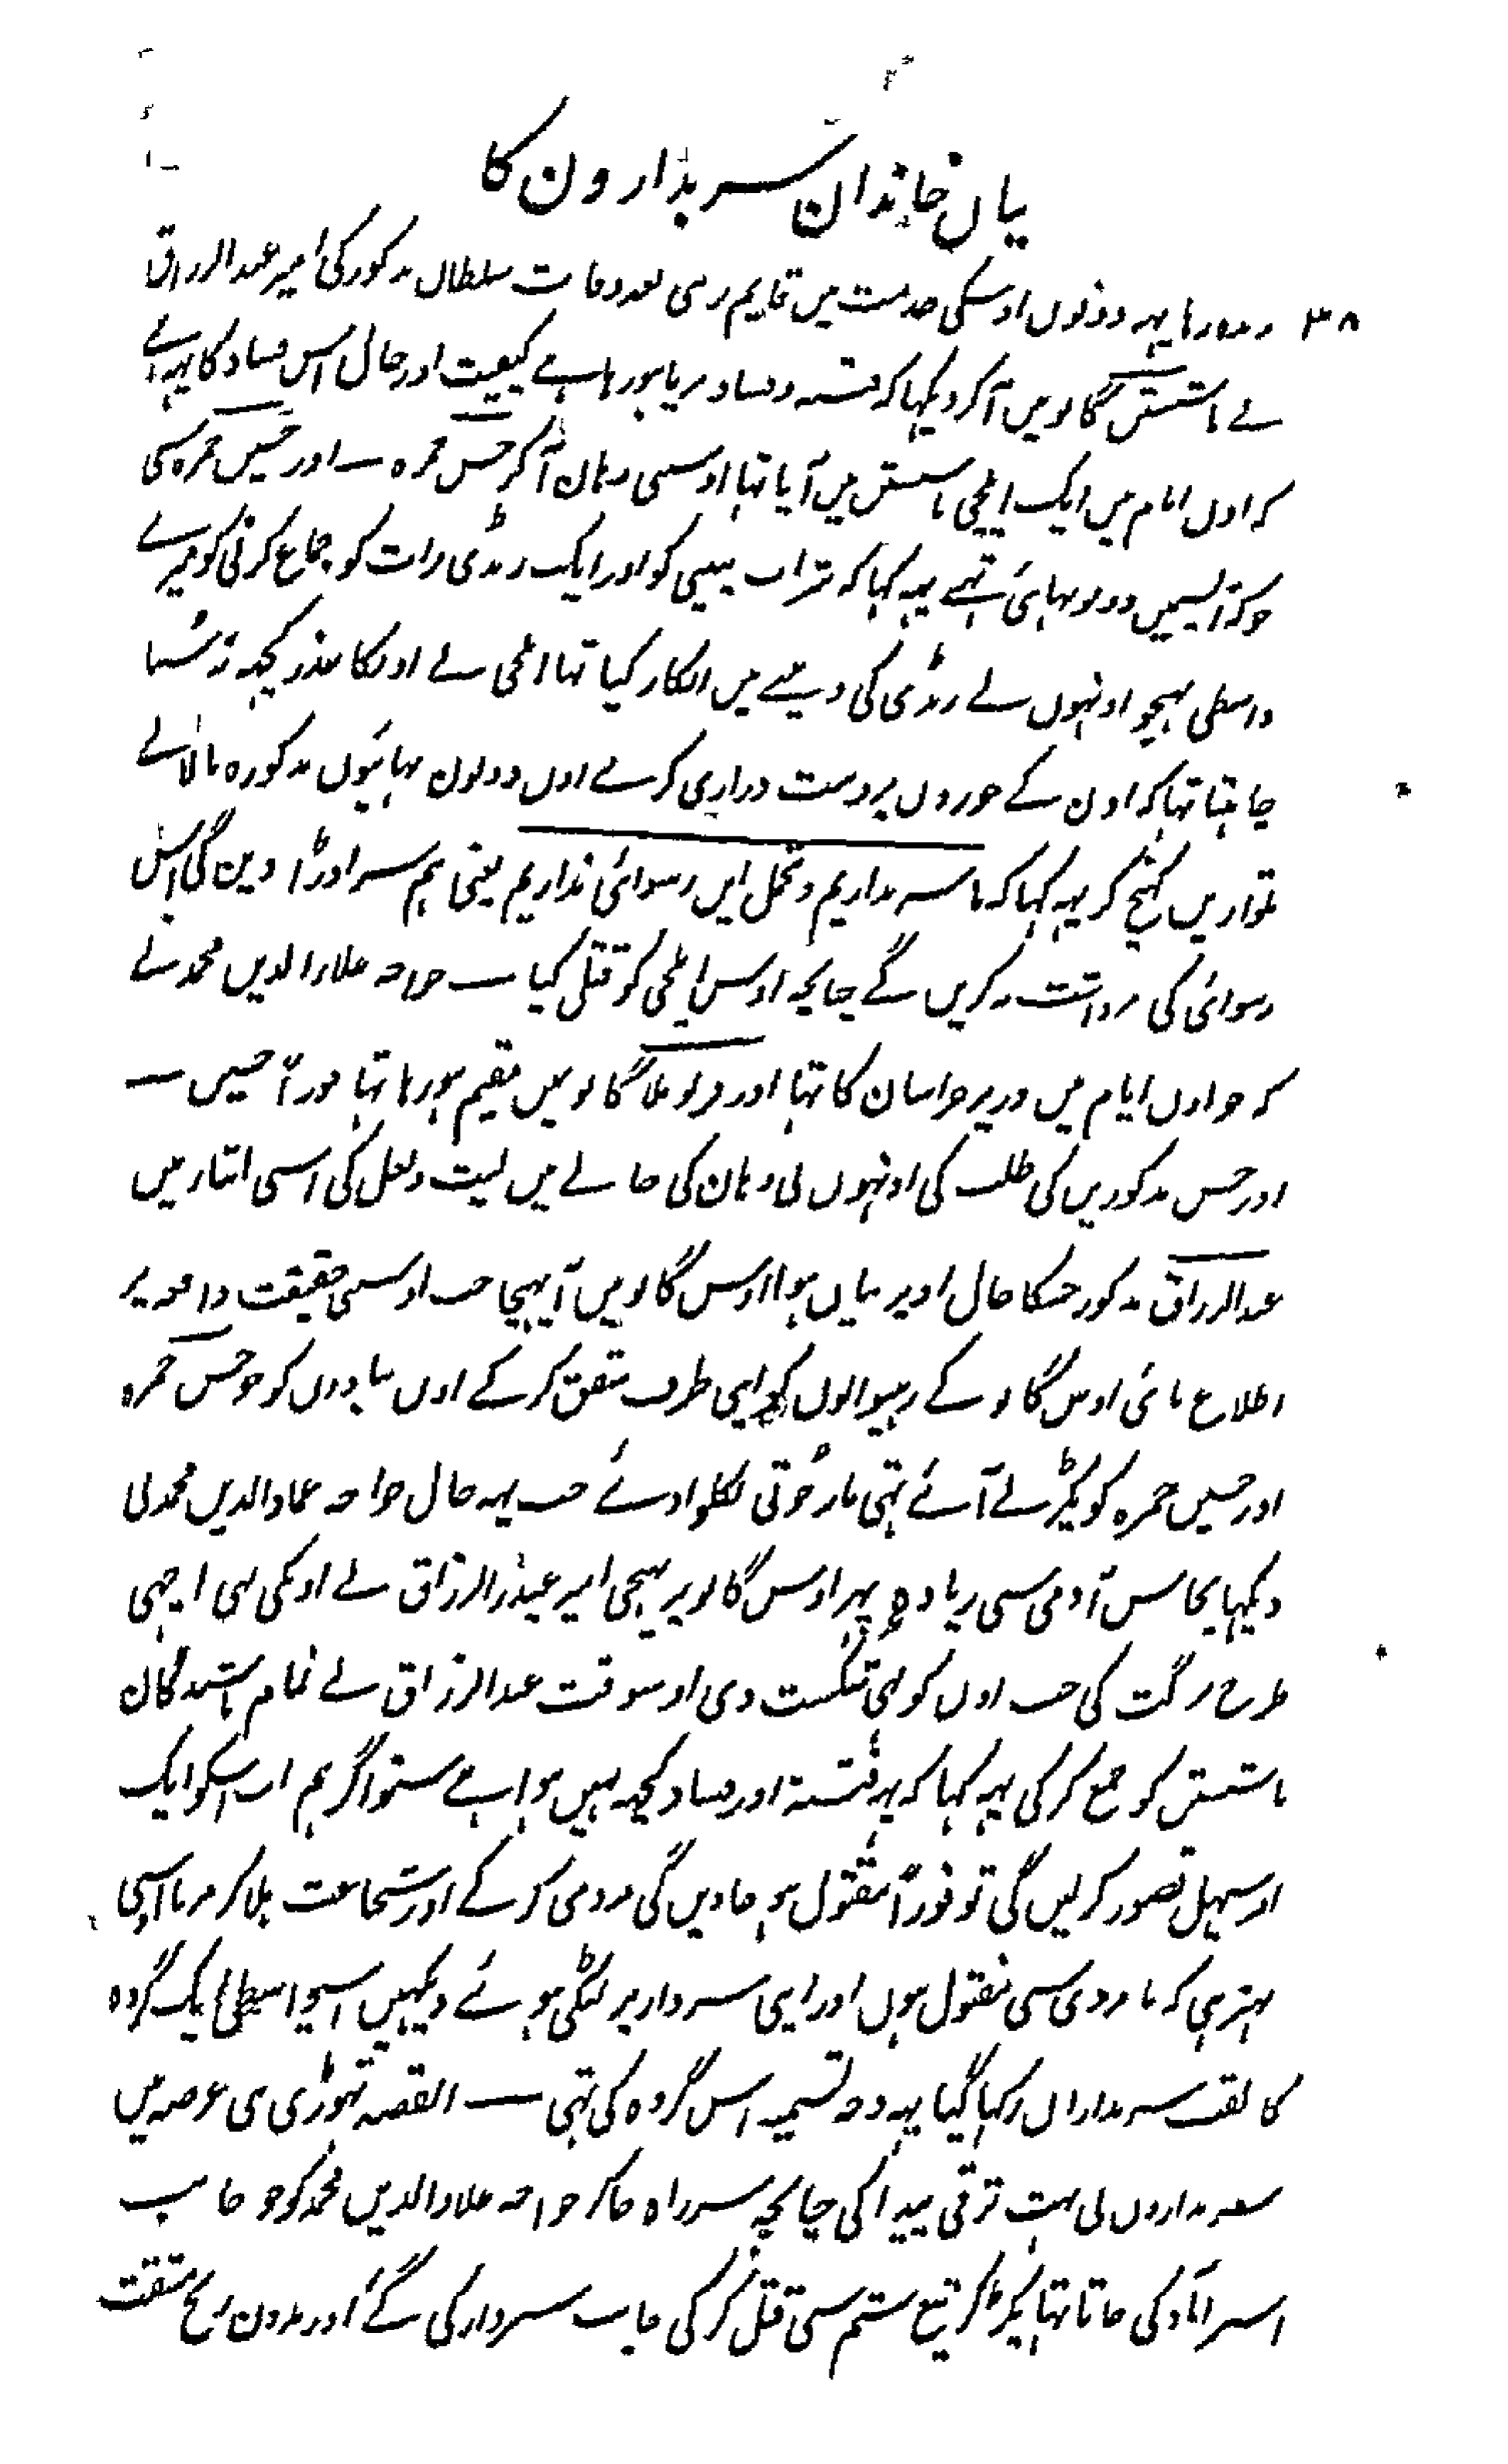 بیان خاندان سربدارون کا
۳۸ یہہ دونوں اوسکی خدمت میں قایم رہی بعد وفات سلطان مذکور کی امیر عبدالرزاق
نے باشتین گانو میں آکر دیکہا کہ فتنہ و فساد برپا ہو رہا ہے کیفیت اور حال اس فساد کا یہہ ہے
کہ اون ایام میں ایک ایلچی باشتین میں آیا تہا اوسی وہان آکر حسن حمزہ ــ اور حسین حمزہ سی
جو کہ آپسمیں دونو بہائی تہے یہہ کہا کہ شراب پینی کو اور ایک رنڈی رات کو جماع کرنی کو میرے
واسطی بہیجو اونہوں نے رنڈی کی دینے میں انکار کیا تہا ایلچی نے اونکا عذر کچہہ نہ سنا
چاہتا تہا کہ اون کے جوروں پر دست درازی کرے اون دونون بہائیوں مذکورہ بالا نے
تلواریں کہنچ کر یہہ کہا کہ ما سر بداریم و تحمل این رسوائی نداریم یعنی ہم سر اوڑا دین گی اس
رسوائی کی برداشت نہ کریں گے چنانچہ اوس ایلچی کو قتل کیا ــ خواجہ علاء الدین محمد نے
کہ جو اون ایام میں وزیر خراسان کا تہا اور گانو میں مقیم ہو رہا تہا فوراً حسین ــ
اور حسن مذکورین کی طلب کی اونہوں نی وہان کی جانے میں لیت و لعل کی اسی اثنا میں
عبدالرزاق مذکور جسکا حال اوپر بیان ہوا اوس گانو میں آ پہنچا جب اوسی حقیقت واقعہ پر
اطلاع پائی اوس گانو کے رہنیوالوں کو اپنی طرف متفق کر کے اون پیادوں کو جو حسن حمزہ
اور حسین حمزہ کو پکڑنے آئے تہی مار جوتی نکلوا دئے جب یہہ حال خواجہ عماد الدین محمد نی
دیکہا پچاس آدمی سی زیادہ پہر اوس گانو پر بہیجی امیر عبدالرزاق نے اونکی بہی اچہی
طرح گت کی جب اون کو بہی شکست دی اوسوقت عبدالرزاق نے تمام باشندگان
باشتین کو جمع کر کی یہہ کہا کہ یہہ فتنہ اور فساد کچہہ نہیں ہوا ہے سنو اگر ہم اب اسکو ایک
امر سہل تصور کر لیں گی تو فوراً مقتول ہو جاویں گی مردمی کر کے اور شجاعت بلا کر مرنا اسی
بہتر ہی کہ نامردی سی مقتول ہوں اور اپنی سر دار پر لٹکی ہوئے دیکہیں اسیواسطی ایک گروہ
کا لقب سربداران رکہا گیا یہہ وجہ تسمیہ اس گروہ کی تہی ــ القصہ تہوڑی ہی عرصہ میں
سربداروں نی بہت ترقی پیدا کی چنانچہ سر راہ جا کر خواجہ علاء الدین محمد کو جو جانب
استرآباد کی جاتا تہا پکڑ کر تیغ ستم سی قتل کر کی جانب سبزوار کی گئے اور بدون رنج مشقت